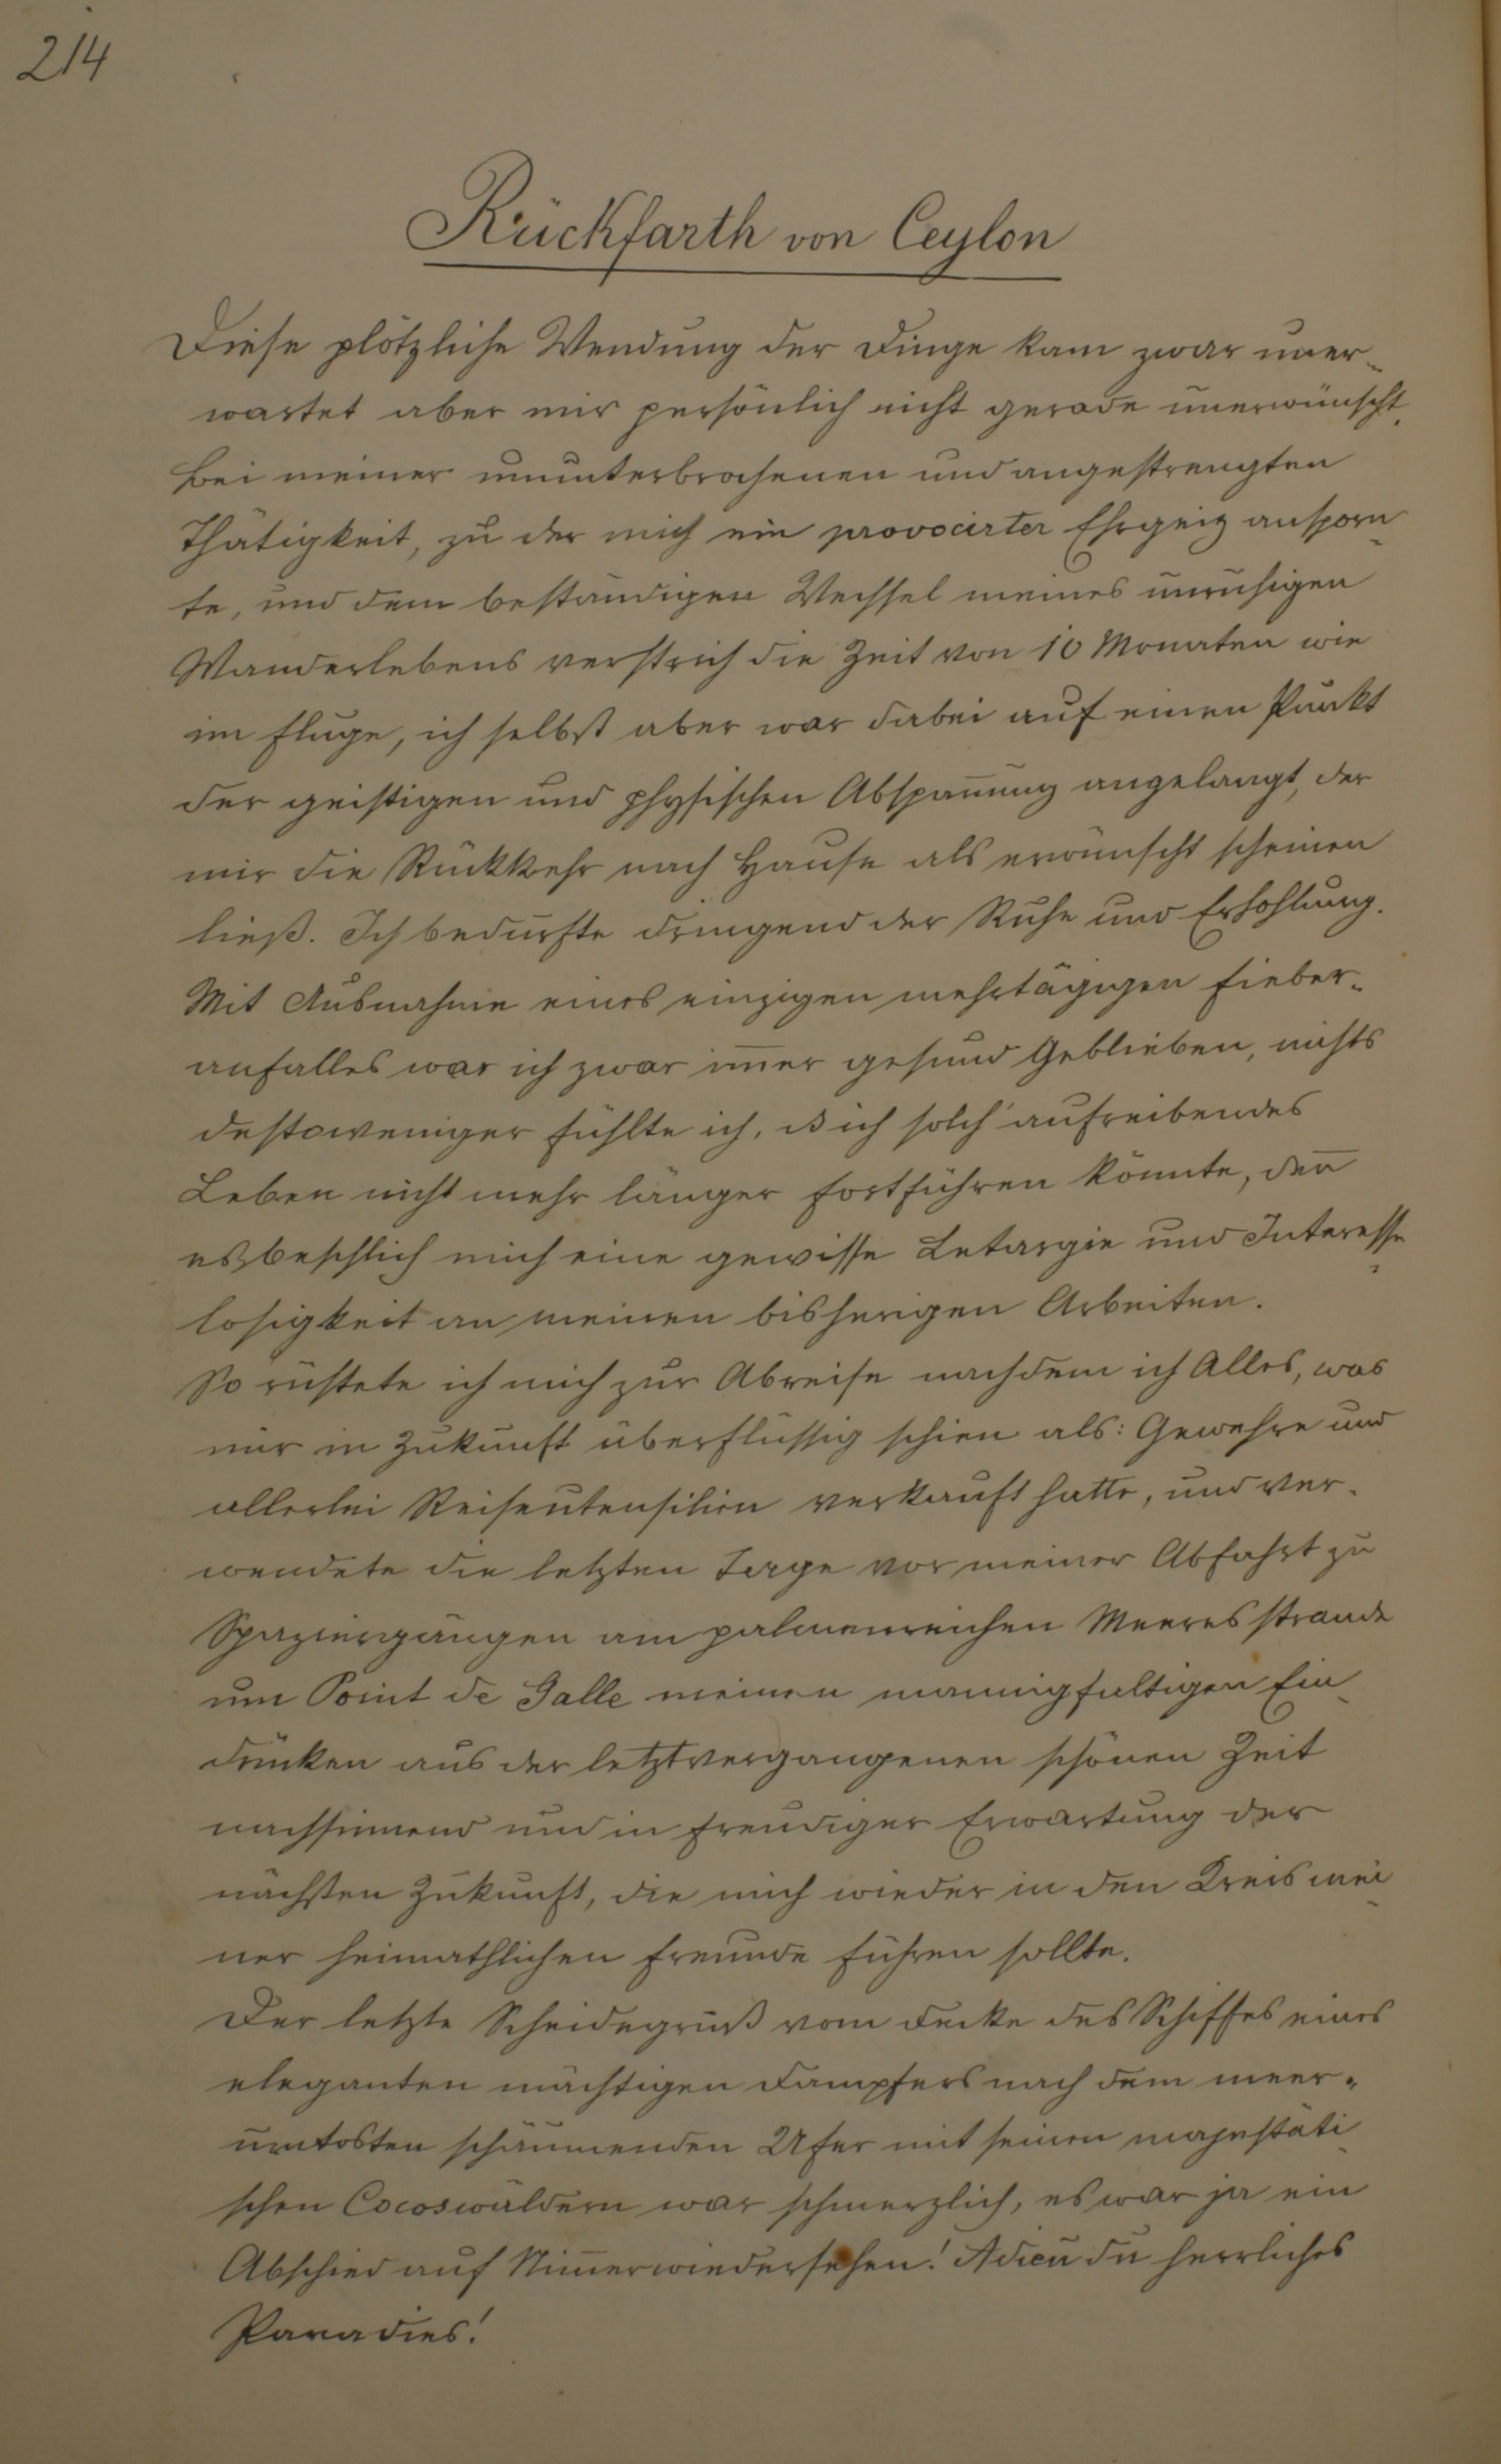 214
Rückfarth von Ceylon
Diese plötzliche Wendung der Dinge kam zwar uner-
wartet aber mir persönlich nicht gerade unerwünscht.
Bei meiner ununterbrochenen und angestrengten
Thätigkeit, zu der mich ein provocirter Ehrgeiz ansporn-
te, und dem beständigen Wechsel meines unruhigen
Wanderlebens verstrich die Zeit von 10 Monaten wie
im Fluge, ich selbst aber war dabei auf einen Punkt
der geistigen und physischen Abspan̄ung angelangt, der
mir die Rückkehr nach Hause als erwünscht scheinen
ließ. Ich bedurfte dringend der Ruhe und Erhohlung.
Mit Ausnahme eines einzigen mehrtägigen Fieber-
anfalles war ich zwar im̄er gesund Geblieben, nichts
destoweniger fühlte ich, ds ich solch' aufreibendes
Leben nicht mehr länger fortführen könnte, den̄
es beschlich mich eine gewisse Letargie und Interesse-
losigkeit an meinen bisherigen Arbeiten.
So rüstete ich mich zur Abreise nachdem ich Alles, was
mir in Zukunft überflüssig schien als: Gewehre und
allerlei Reiseutensilien verkauft hatte, und ver-
wendete die letzten Tage vor meiner Abfahrt zu
Spaziergängen am palmenreichen Meeresstrande
um Point de Galle meinen mannigfaltigen Ein-
drücken aus der letztvergangenen schönen Zeit
nachsinnend und in freudiger Erwartung der
nächsten Zukunft, die mich wieder in den Kreis mei-
ner heimathlichen Freunde führen sollte.
Der letzte Scheidegruß vom Decke des Schiffes eines
eleganten mächtigen Dampfers nach dem meer-
umtosten schäumenden Ufer mit seinen majestäti-
schen Cocoswäldern war schmerzlich, es war ja ein
Abschied auf Nim̄erwiedersehen! Adieu du herrliches
Paradies!